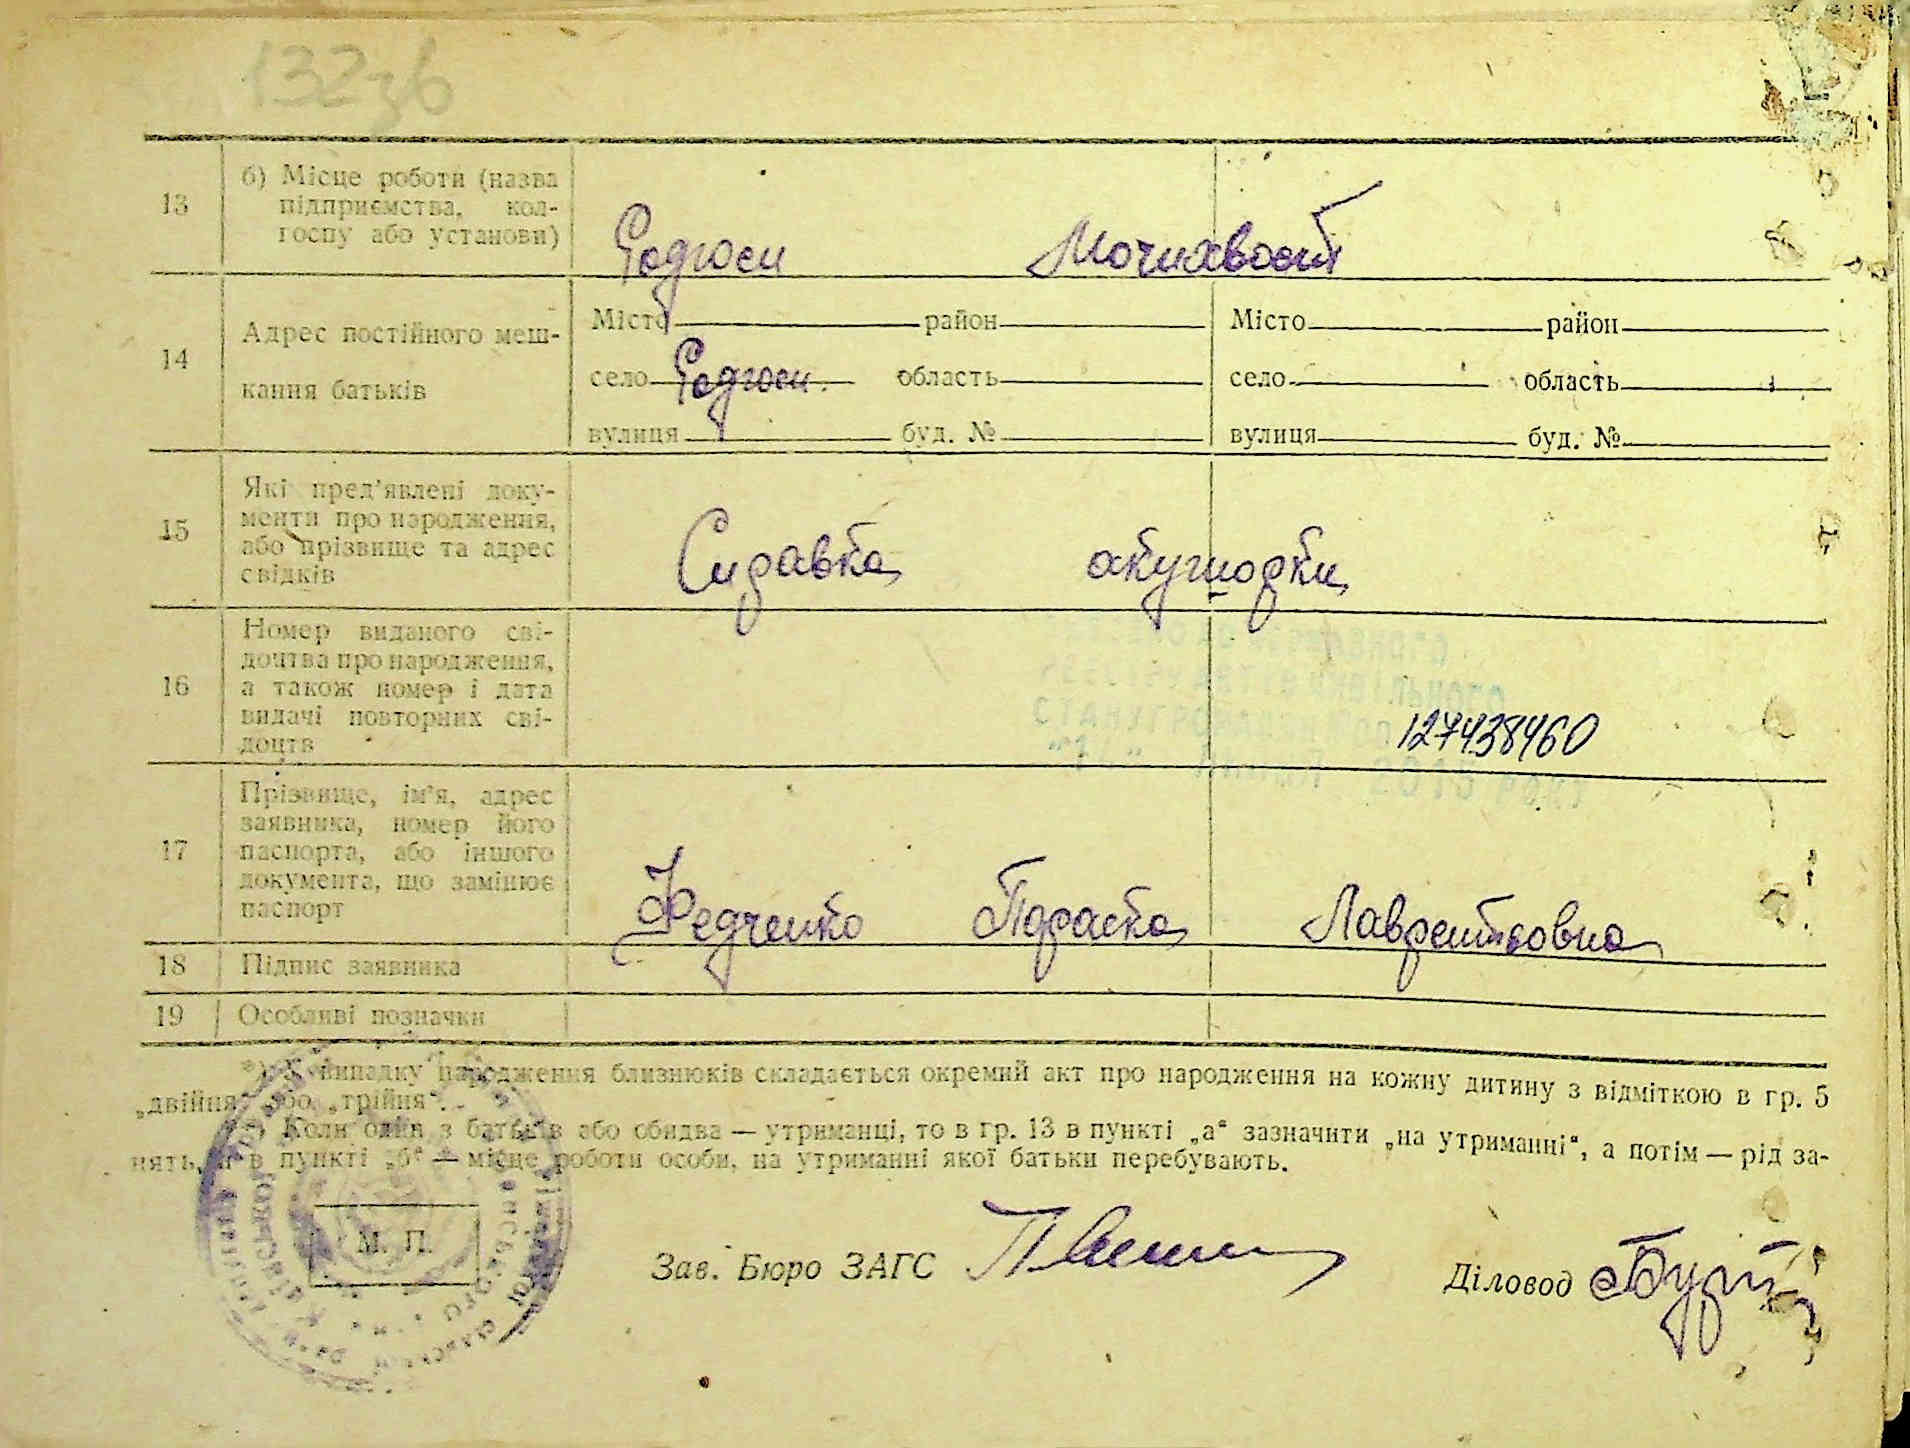 132зв
13
б) Місце роботи (назва
підприємства, кол-
госпу або установи)
Мочихвост
14
Адрес постійного меш-
кання батьків
Місто район Місто район
село область село область
вулиця буд. № вулиця буд. №
15
Які пред'явлені доку-
менти про народження,
або прізвище та адрес
свідків
Справка акушорки
16
Номер виданого сві-
доцтва про народження,
а також номер і дата
видачі повторних сві-
доцтв
127438460
17
Прізвище, ім'я, адрес
заявника, номер його
паспорта, або іншого
документа, що замінює
паспорт
Федченко Параска Лаврентьовна
18 Підпис заявника
19 Особливі позначки
*) У випадку народження близнюків складається окремий акт про народження на кожну дитину з відміткою в гр. 5
„двійня“ або „трійня“.
Коли один з батьків або обидва — утриманці, то в гр. 13 в пункті „а“ зазначити „на утриманні“, а потім — рід за-
нять, а в пункті „б“ — місце роботи особи, на утриманні якої батьки перебувають.
М. П.
Зав. Бюро ЗАГС
Діловод